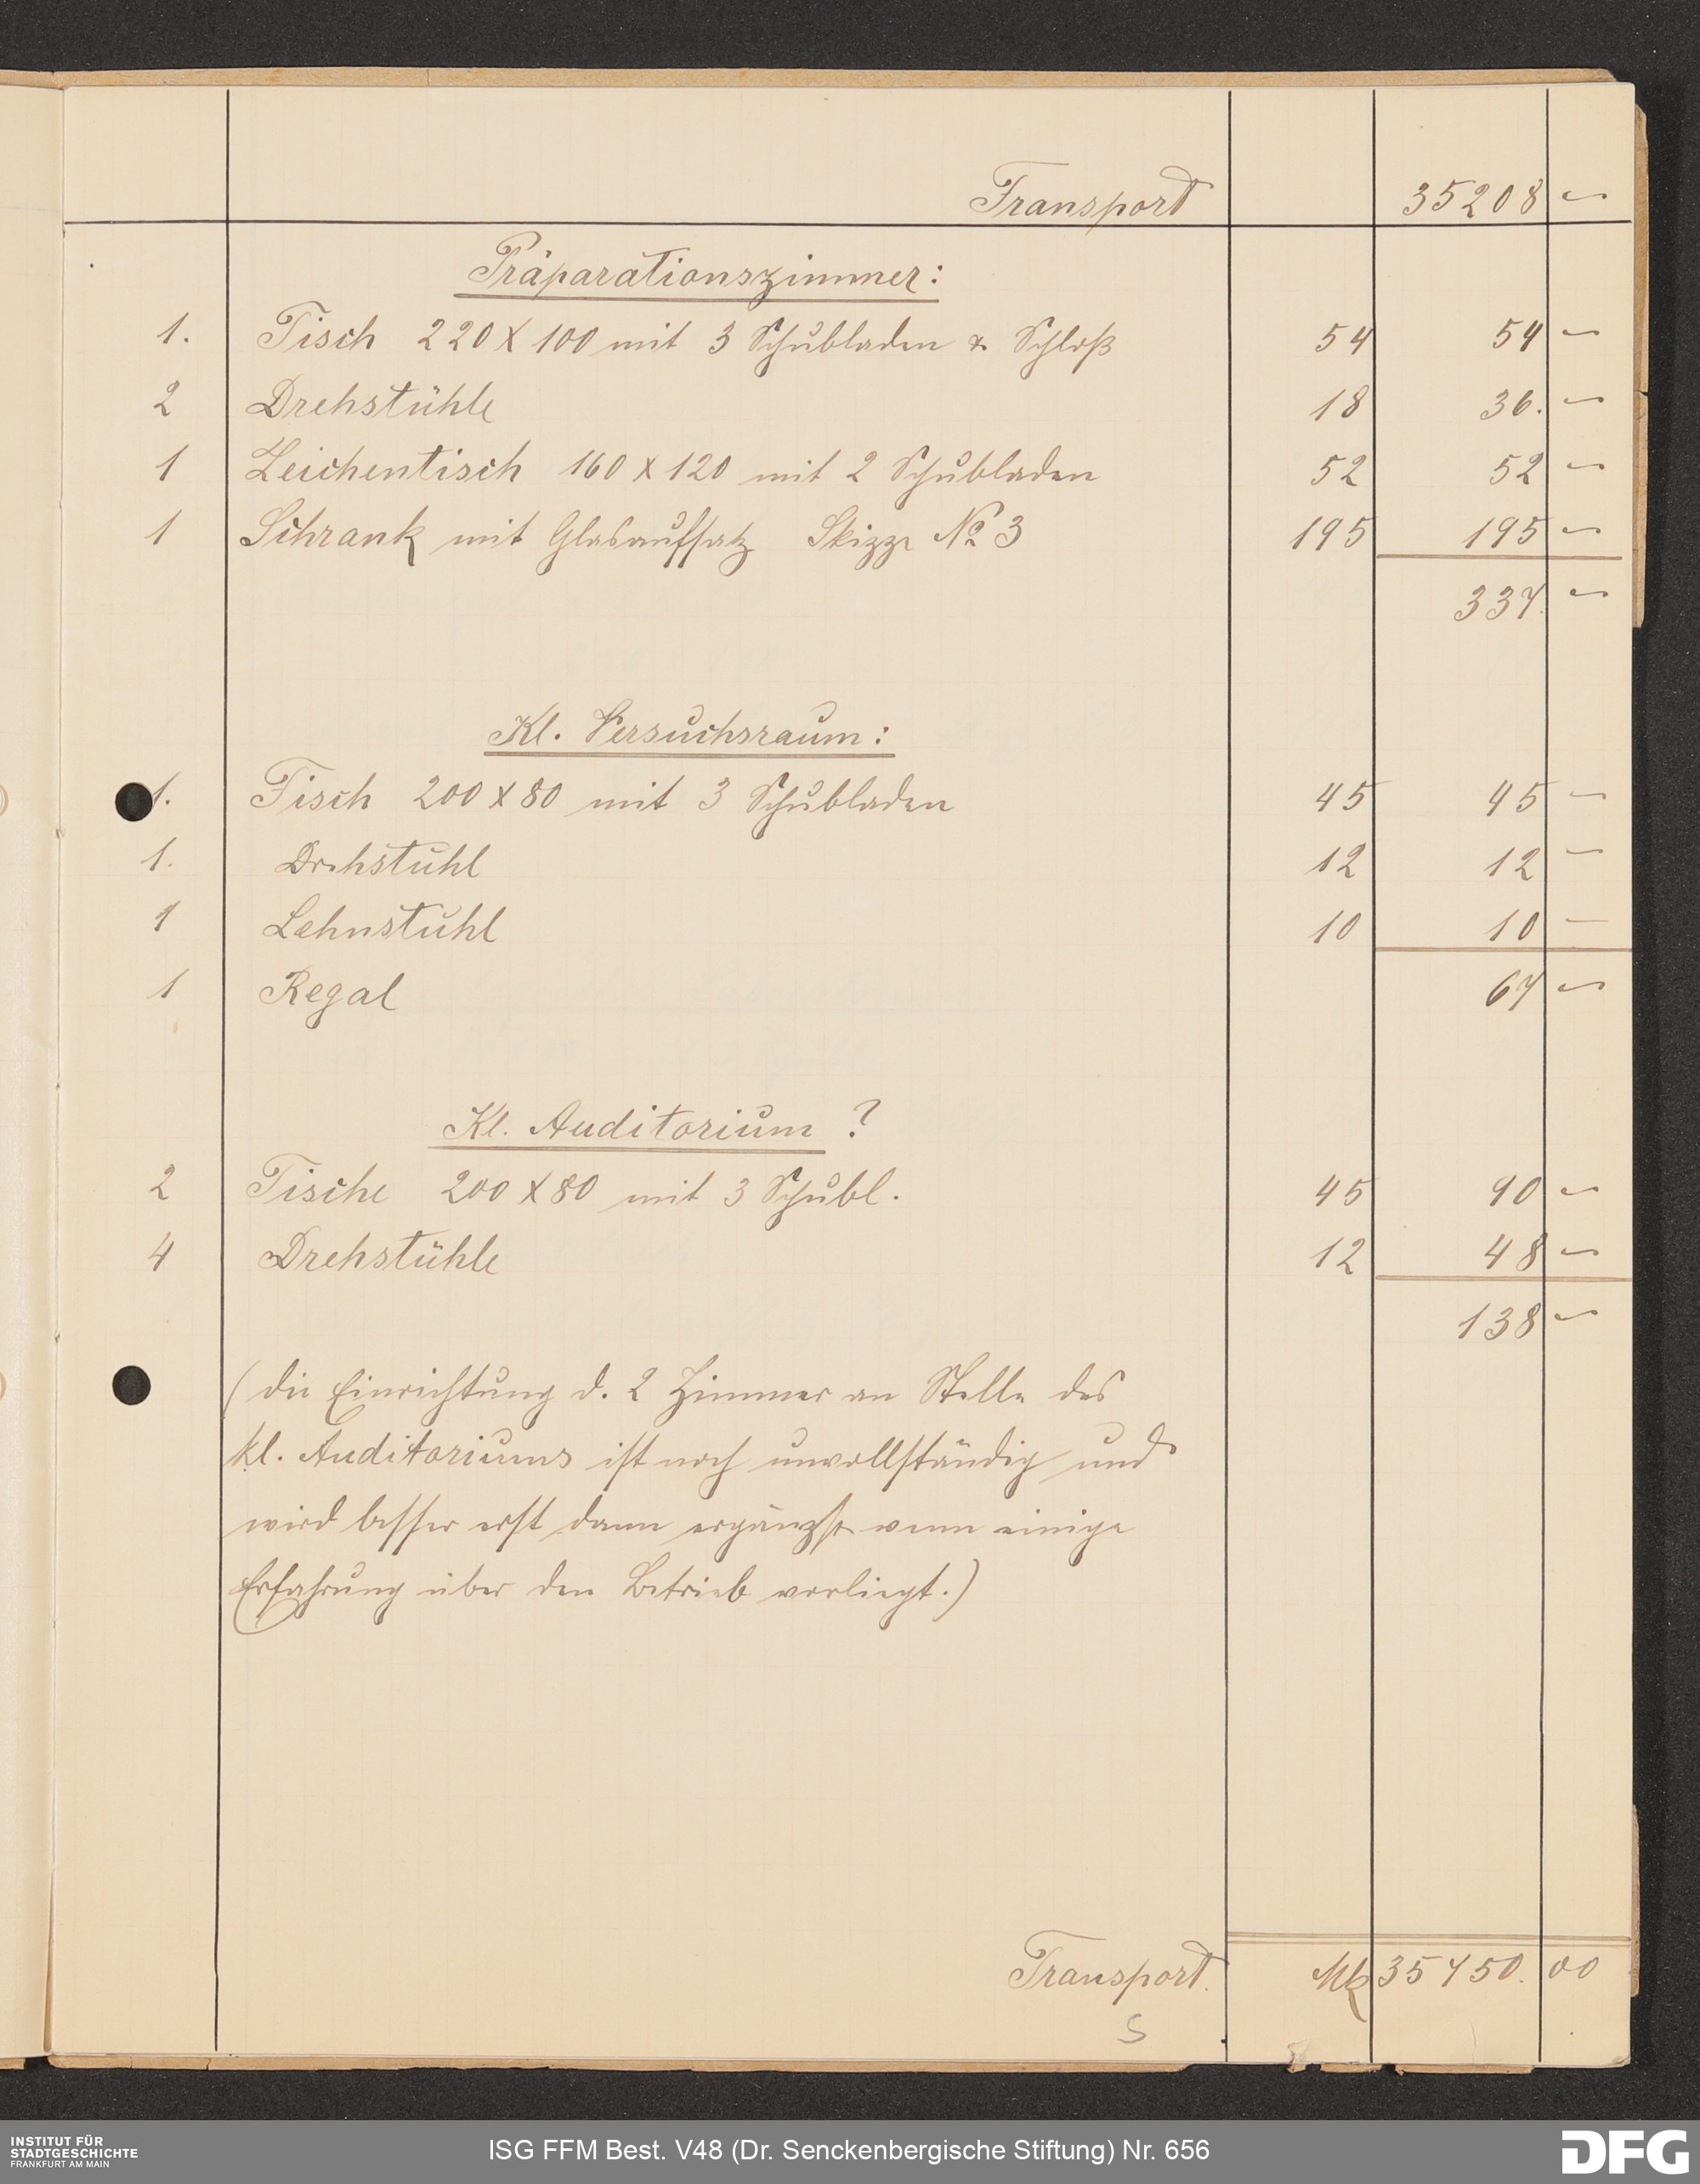 Transport 35208 –
Präparationszimmer:
1. Tisch 220 X 100 mit 3 Schubladen & Schloß 54 54 –
2 Drehstühle 18 36. –
1 Zeichentisch 160 X 120 mit 2 Schubladen 52 52 –
1 Schrank mit Glasaufsatz Skizze No 3 195 195 –
337. –
Kl. Versuchsraum:
1. Tisch 200 X 80 mit 3 Schubladen 45 45 –
1. Drehstuhl 12 12 –
1 Lehnstuhl 10 10 –
1 Regal 67 –
Kl. Auditorium ?
2 Tische 200 X 80 mit 3 Schubl. 45 90 –
4 Drehstühle 12 48 –
138 –
(die Einrichtung d. 2 Zimmer an Stelle des
kl. Auditoriums ist noch unvollständig und
wird besser erst dann ergänzt wenn einige
Erfahrung über den Betrieb vorliegt.)
Transport. Mk 35750. 00
S
INSTITUT FÜR
STADTGESCHICHTE
FRANKFURT AM MAIN
ISG FFM Best. V48 (Dr. Senckenbergische Stiftung) Nr. 656
DFG